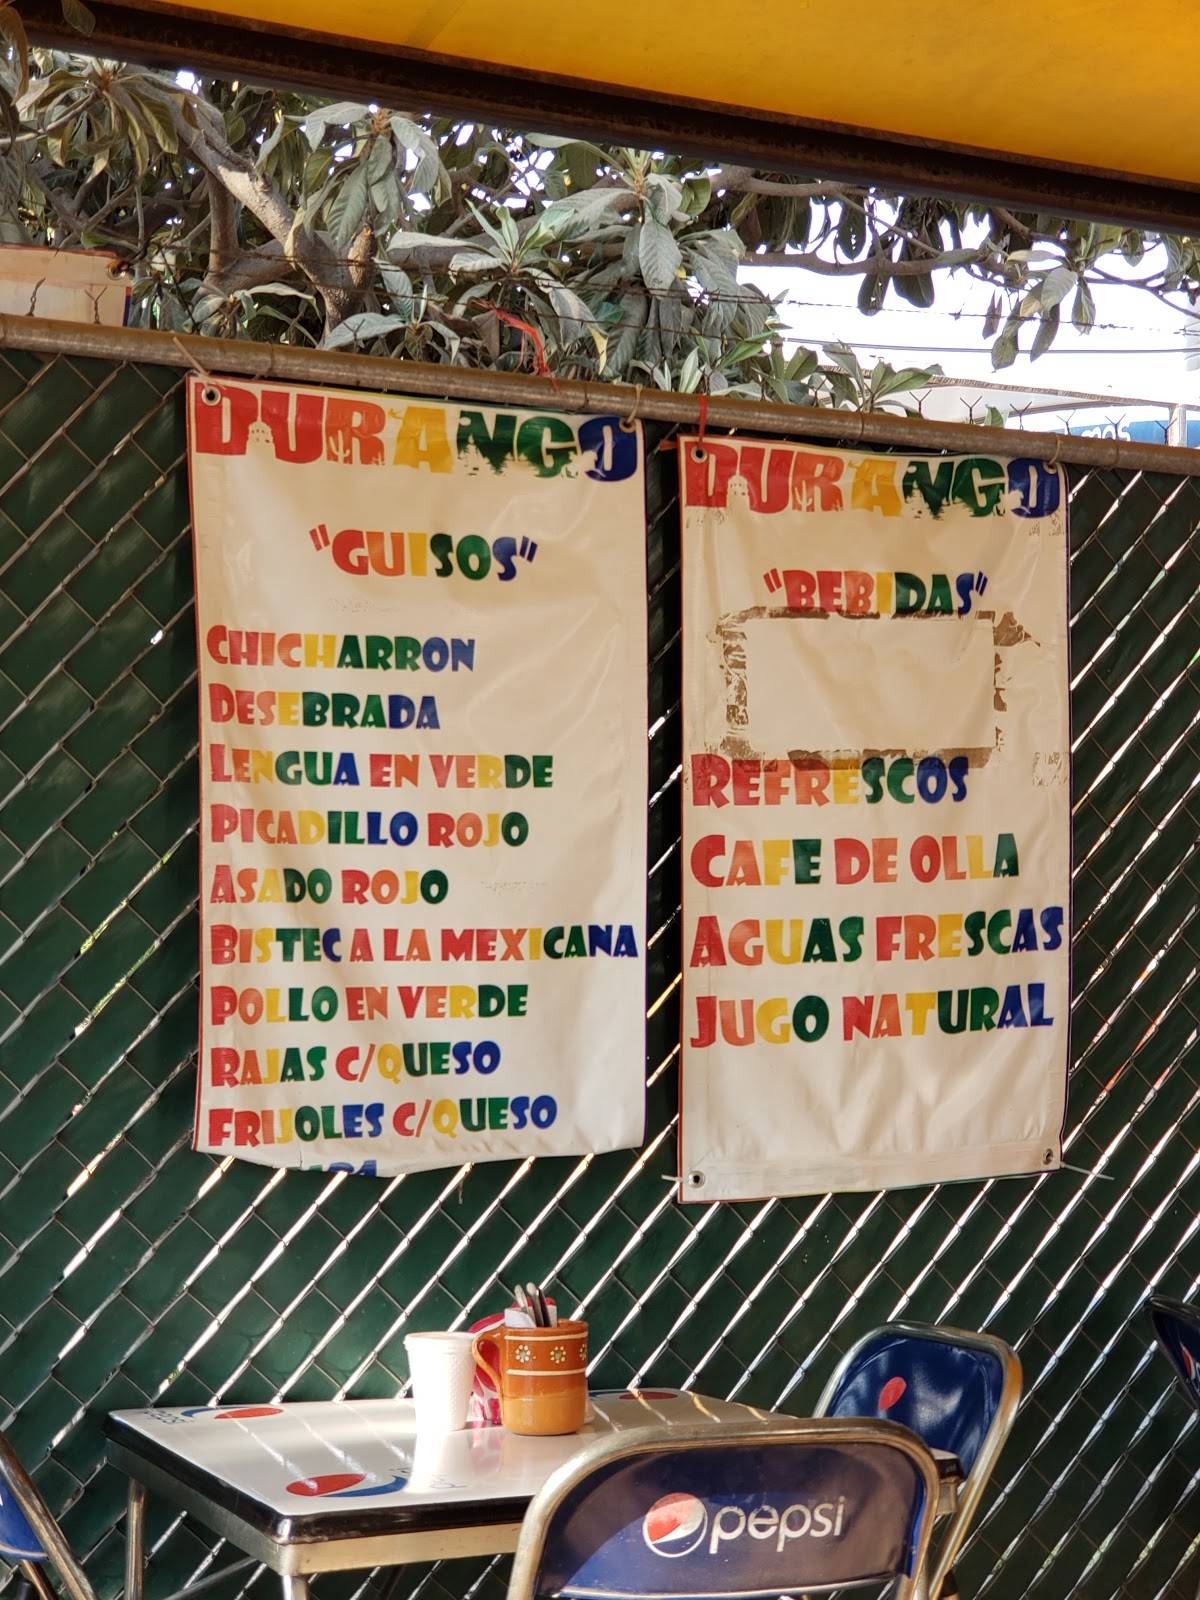 DURANGO
"GUISOS"
CHICHARRON
DESEBRADA
LENGUA EN VERDE
PICADILLO ROJO
ASADO ROJO
BISTEC A LA MEXICANA
POLLO EN VERDE
RAJAS C/QUESO
FRIJOLES C/QUESO
DURANGO
"BEBIDAS"
REFRESCOS
CAFE DE OLLA
AGUAS FRESCAS
JUGO NATURAL
pepsi